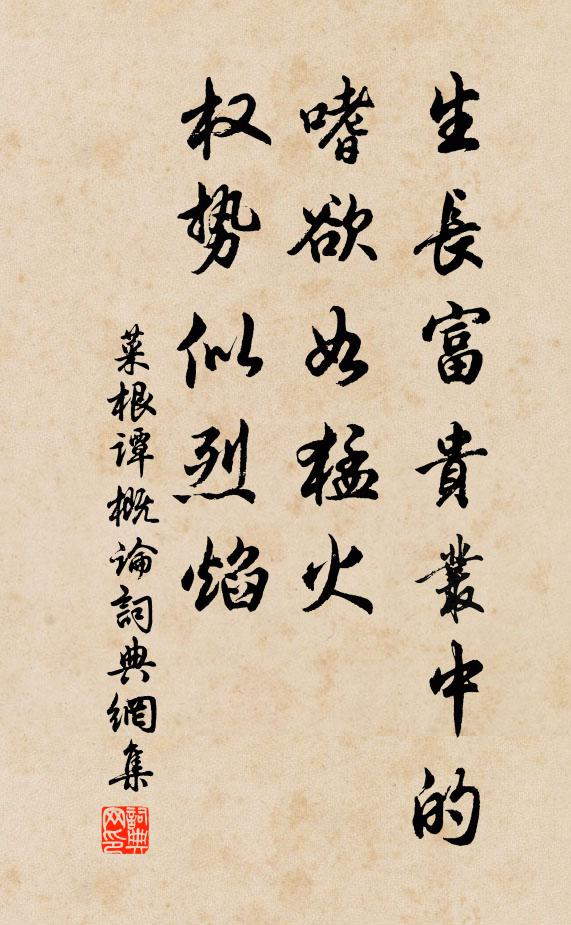 生長富貴叢中的
嗜欲如猛火
权势似烈焰
菜根谭概论詞典網集
詞典网印